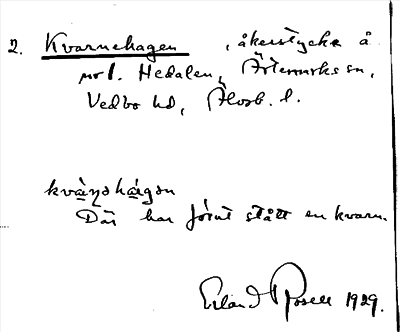 2. Kvarnehagen, åkerstycke å
rot. Hedalen, Ärtemarks sn,
Vedbo hd, Älvsb. l.
kvàn̥əhágən
Där har förut stått en kvarn.
Erland Rosell 1929.